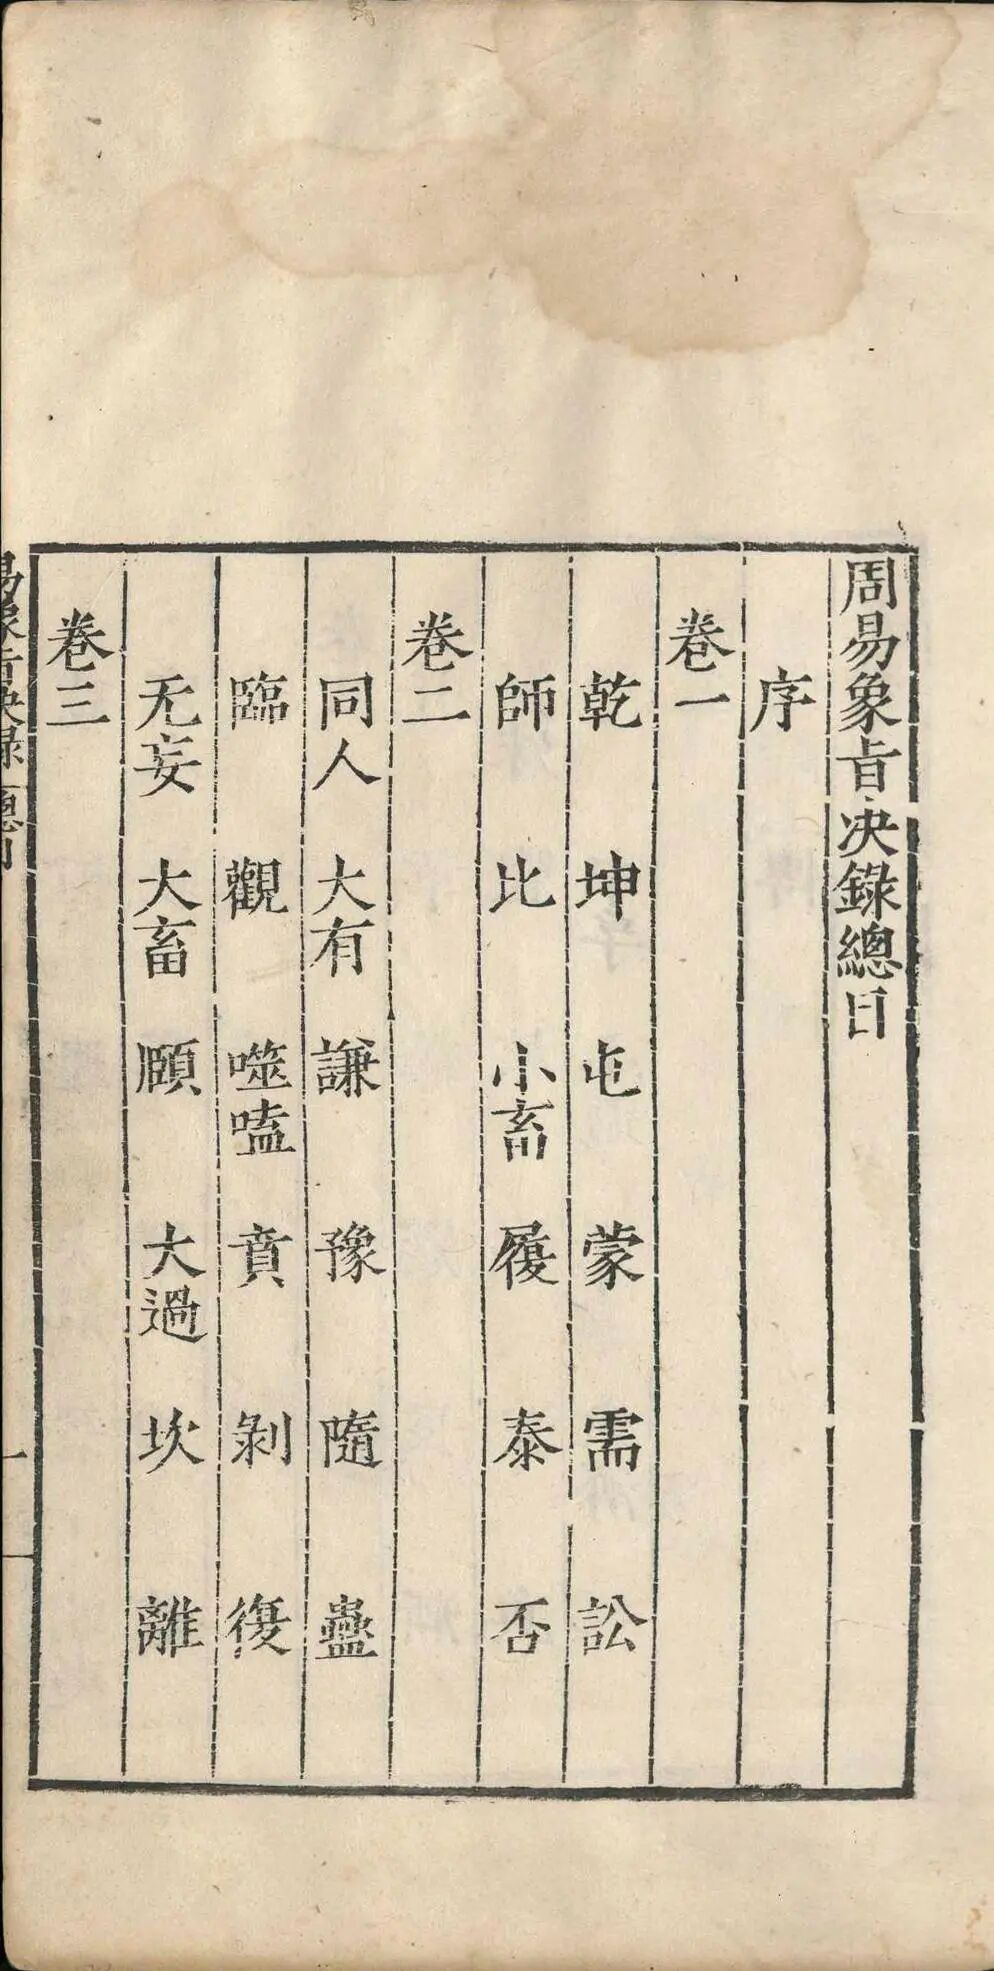 周易象旨决錄總目
序
卷一
乾 坤 屯 蒙 需 訟
師 比 小畜 履 泰 否
卷二
同人 大有 謙 豫 隨 蠱
臨 觀 噬嗑 賁 剝 復
无妄 大畜 頤 大過 坎 離
卷三